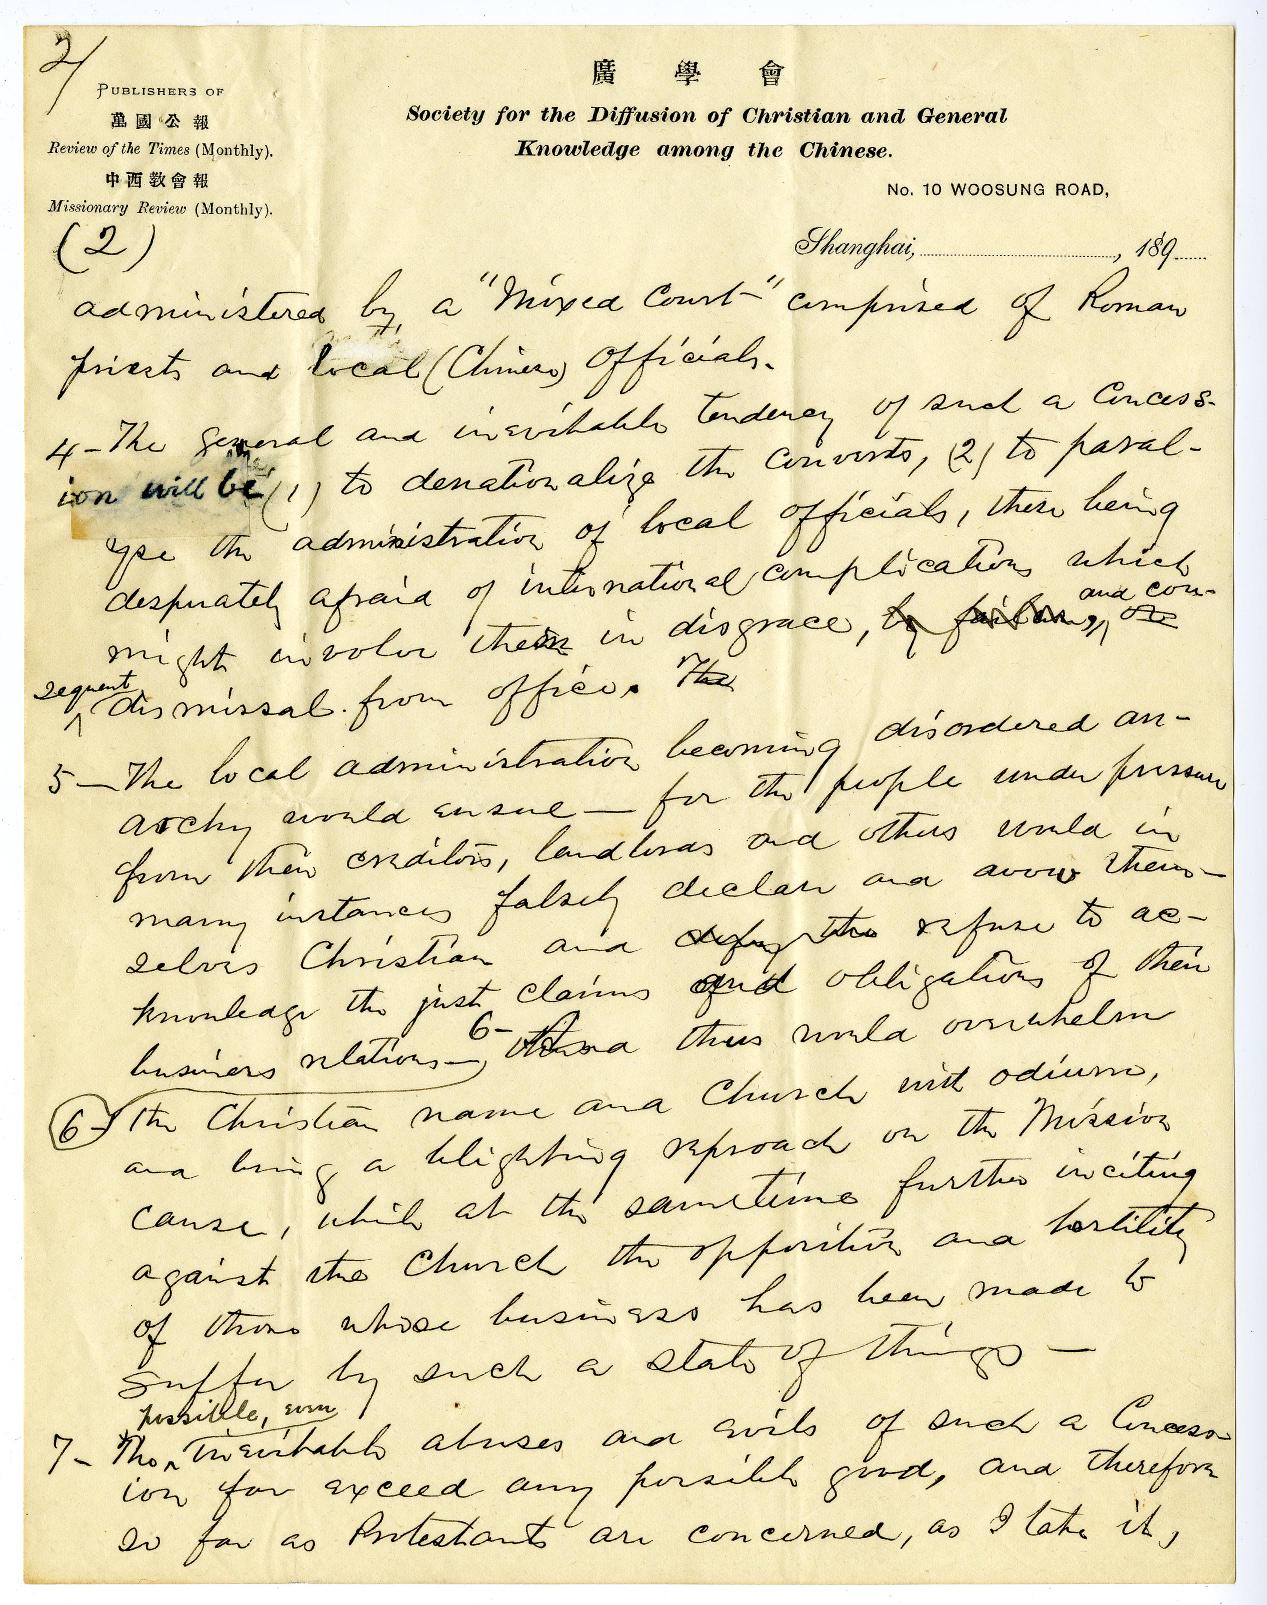 2/
PUBLISHERS OF
萬國公報
Review of the Times (Monthly).
中西教會報
Missionary Review (Monthly).
廣學會
Society for the Diffusion of Christian and General
Knowledge among the Chinese.
No. 10 WOOSUNG ROAD,
Shanghai, , 189
(2)
administered by a "Mixed Court" comprised of Roman
priests and local (Chinese) officials.
4- The general and inevitable tendency of such a Concess-
ion will be (1) to denationalize the converts, (2) to paral-
yse the administration of local officials, these being
desperately afraid of international complications which
might involve them in disgrace, by failure, and con- or
sequent dismissal from office. The
5- The local administration becoming disordered an-
archy would ensue — for the people under pressure
from their creditors, landlords and others would in
many instances falsely declare and avow them-
selves Christian and defy the refuse to ac-
knowledge the just claims and obligations of their
business relations — 6- And thus would overwhelm
6- the Christian name and Church with odium,
and bring a blighting reproach on the Mission
cause, while at the sametime further inciting
against the Church the opposition and hostility
of those whose business has been made to
suffer by such a state of things —
possible, even
7- The inevitable abuses and evils of such a Concess-
ion far exceed any possible good, and therefore
so far as Protestants are concerned, as I take it,